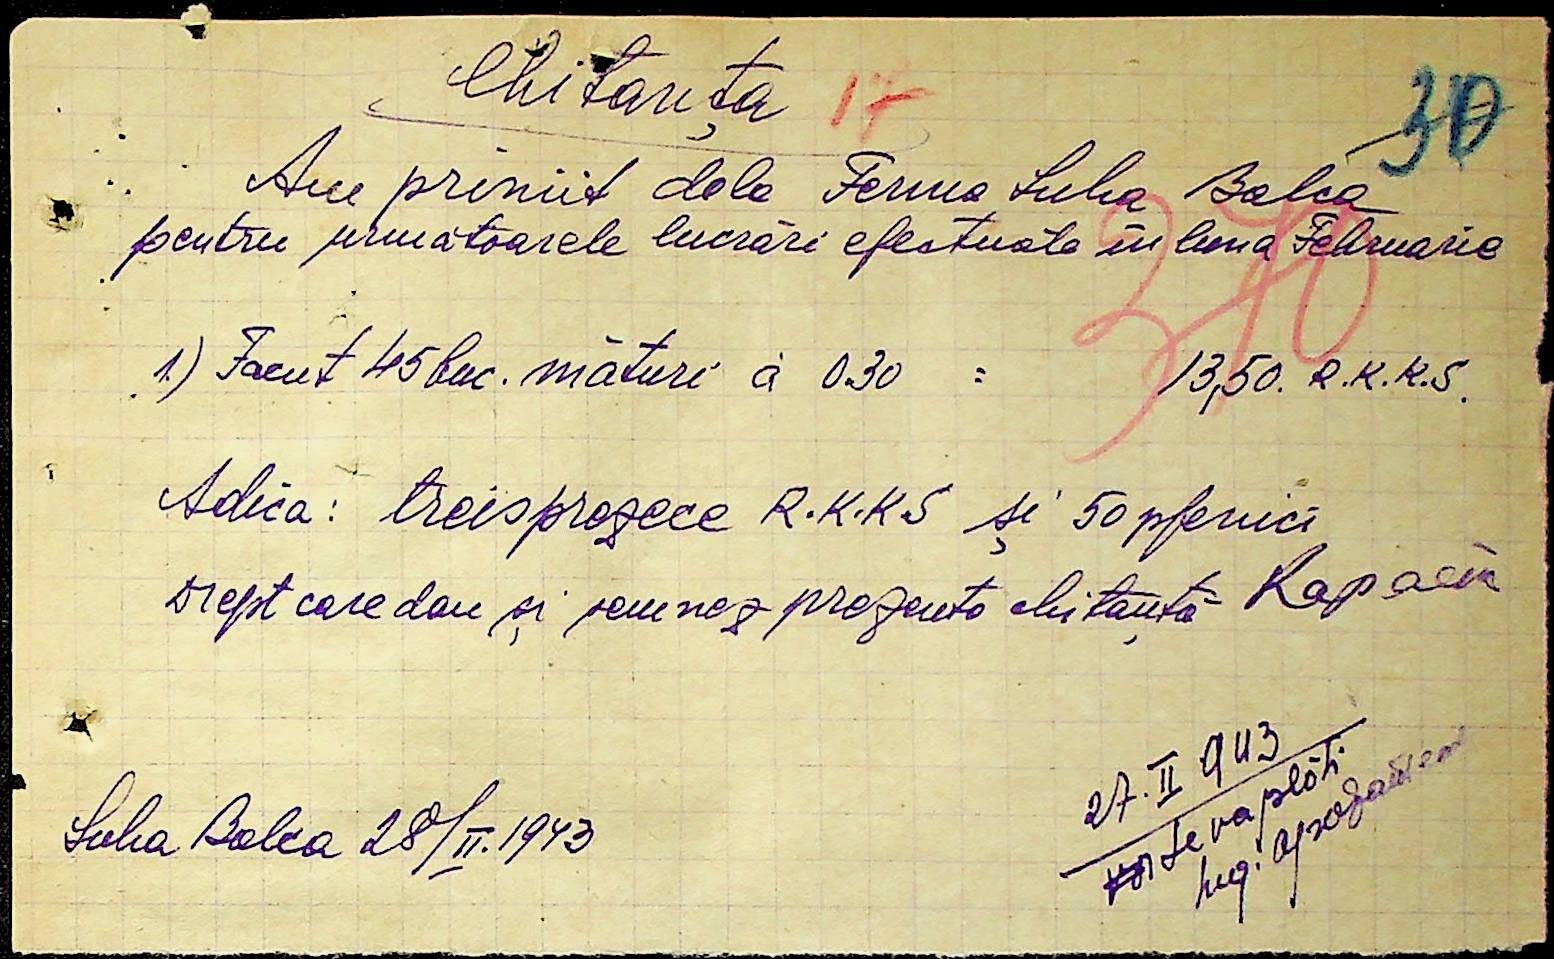 Chitanța 17
30
Am primit dela Ferma Suha Balca
pentru următoarele lucrări efectuate în luna Februarie
370
1.) Facut 45 buc. mături à 0.30 = 13,50. R.K.K.S.
Adica: treisprezece R.K.K.S și 50 pfenici
Drept care dau și semnez prezenta chitanță
Suha Balca 28/II.1943
27.II 943
se va plăti
Ing.